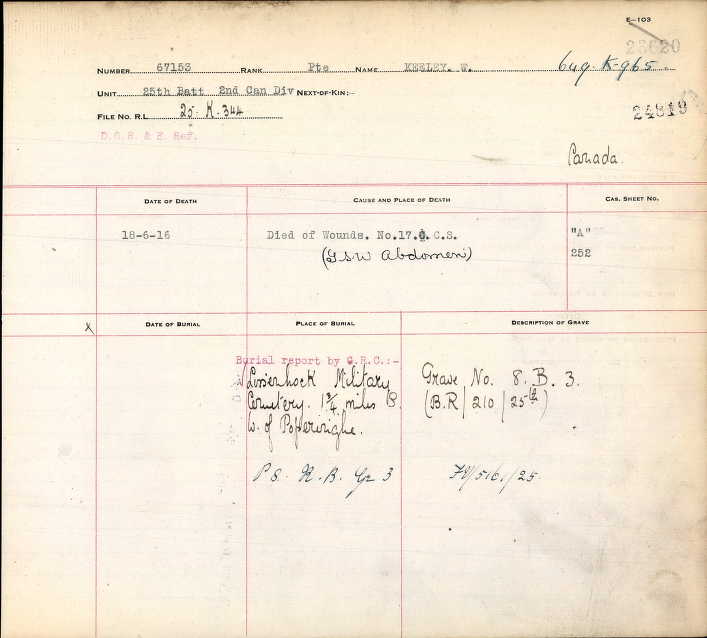 E-103
23620
NUMBER 67153 RANK Pte NAME KEELEY. W. 649-K-965
UNIT 25th Batt 2nd Can Div NEXT-OF-KIN:-
FILE NO. R.L. 25-K.344
24819
D.G.R. & E. Ref.
Canada.
DATE OF DEATH CAUSE AND PLACE OF DEATH CAS. SHEET NO.
18-6-16 Died of Wounds. No.17.C.C.S. "A"
(G.S.W Abdomen) 252
X DATE OF BURIAL PLACE OF BURIAL DESCRIPTION OF GRAVE
Burial report by G.R.C.:-
Lissenhock Military Grave No. 8. B. 3.
Cemetery. 1¾ miles (B.R/210/25th)
W. of Poperinghe.
Gr 3